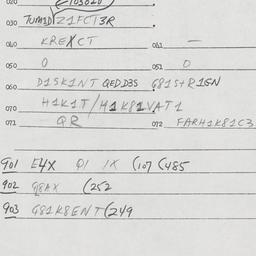 020 103020
030 TUM1D Z1FCT3R
040 KREXCT 041 —
050 0 051 0
060 D1SK1NT QEDD3S G81StR1GN
070 H1K1T/H1K81VAT1
071 QR 072 FARH1K81C3
901 E4X Q1 1X (107 (485
902 Q8AX (252
903 G81K8ENT(249